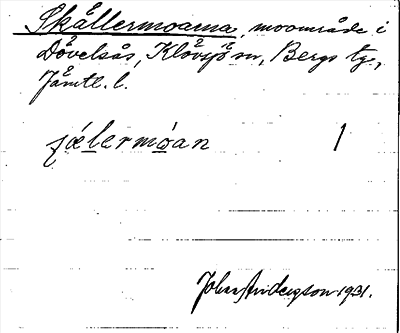 Skållermoarna, moområde i
Dövelsås, Klövsjö sn, Bergs tg,
Jämtl. l.
fǽlermøan 1
John Anderzson 1931.